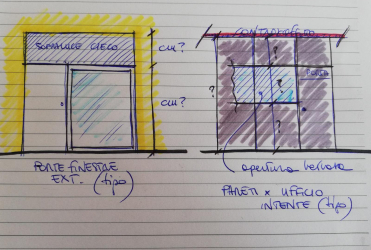 SOPRALUCE CIECO
cm?
cm?
PORTE FINESTRE
EXT. (tipo)
CONTROTELAIO
PORTA
?
?
?
?
?
apertura vetrata
PARETI x UFFICIO
INTERNE (tipo)